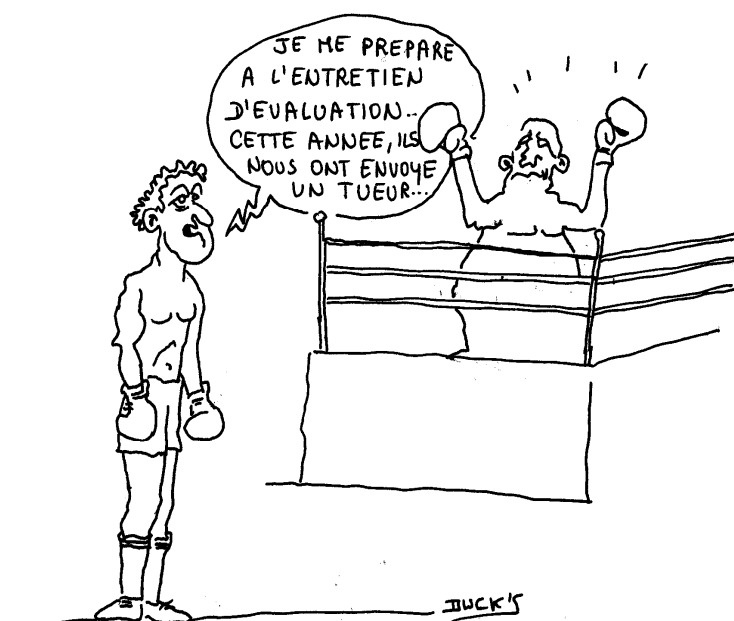 JE ME PREPARE
A L'ENTRETIEN
D'EVALUATION..
CETTE ANNEE, ILS
NOUS ONT ENVOYE
UN TUEUR...
DUCK'S